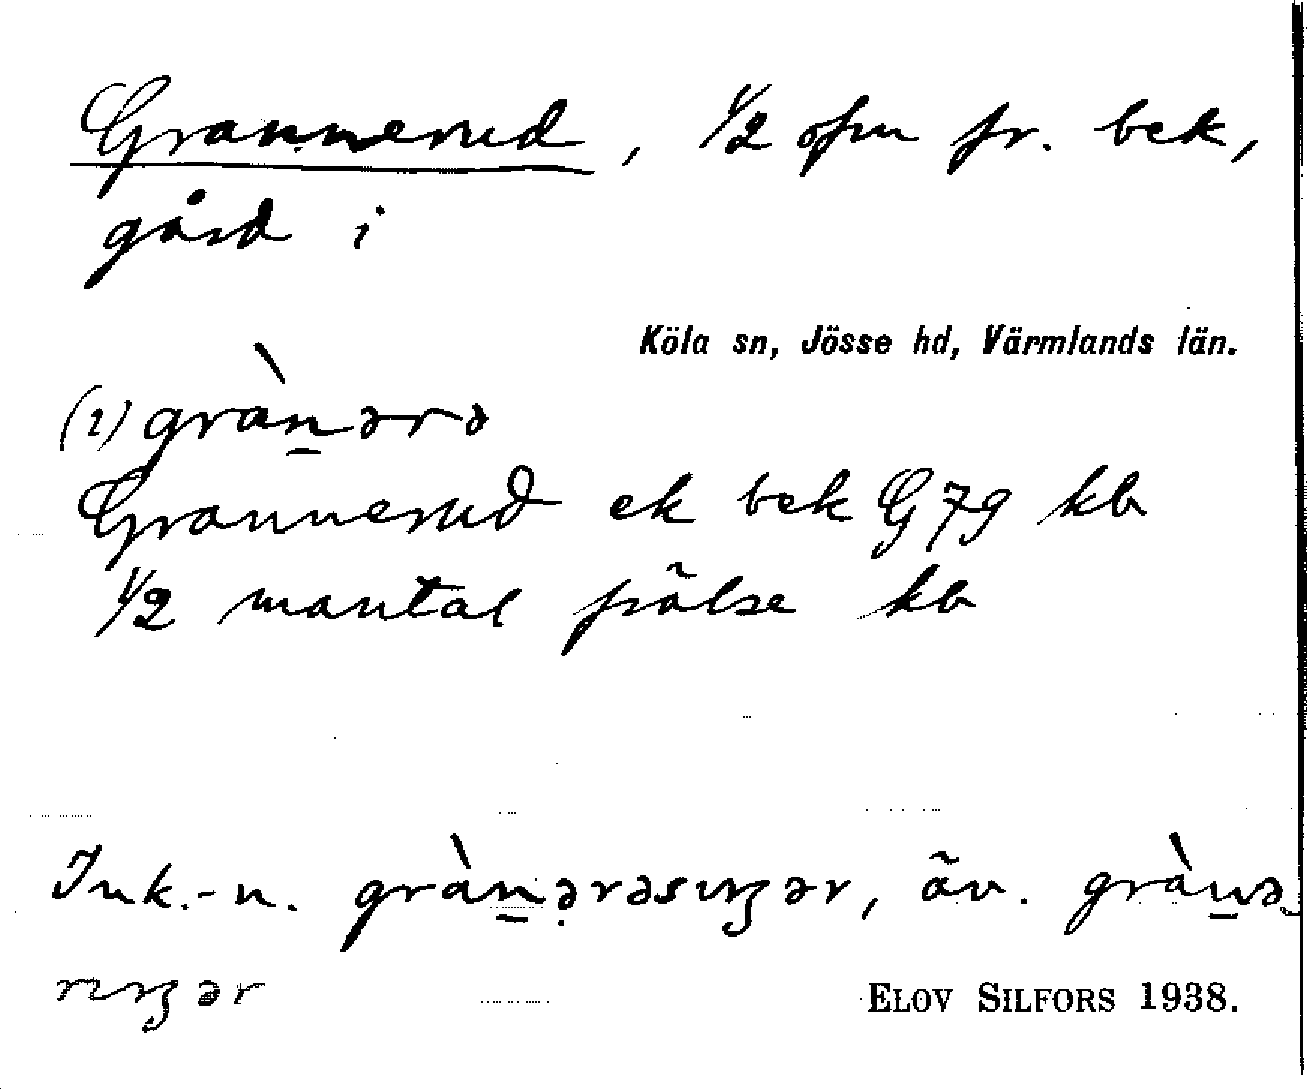 Grannerud, 1/2 ofm fr. bek,
gård i
Köla sn, Jösse hd, Värmlands län.
(1) gràn̲ərə
Grannerud ek bek G 79 kb
1/2 mantal frälse kb
Ink.-n. gràn̲ərəsıŋər, äv. gràn̲ə-
rıŋər
ELOV SILFORS 1938.